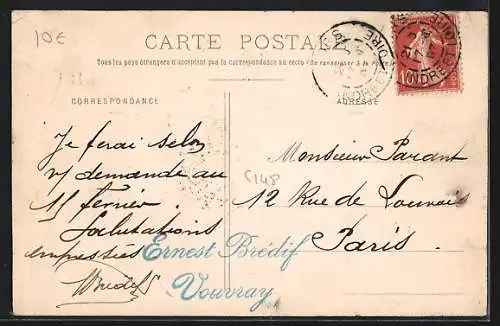 10€
CARTE POSTALE
Tous les pays étrangers n'acceptent pas la correspondance au recto
CORRESPONDANCE
ADRESSE
Je ferai selon
v/ demande au
15 fevrier.
Salutations
empressées
Monsieur Parant
C148
12 Rue de Louvois
Paris.
Ernest Brédif
Vouvray
10
INDRE